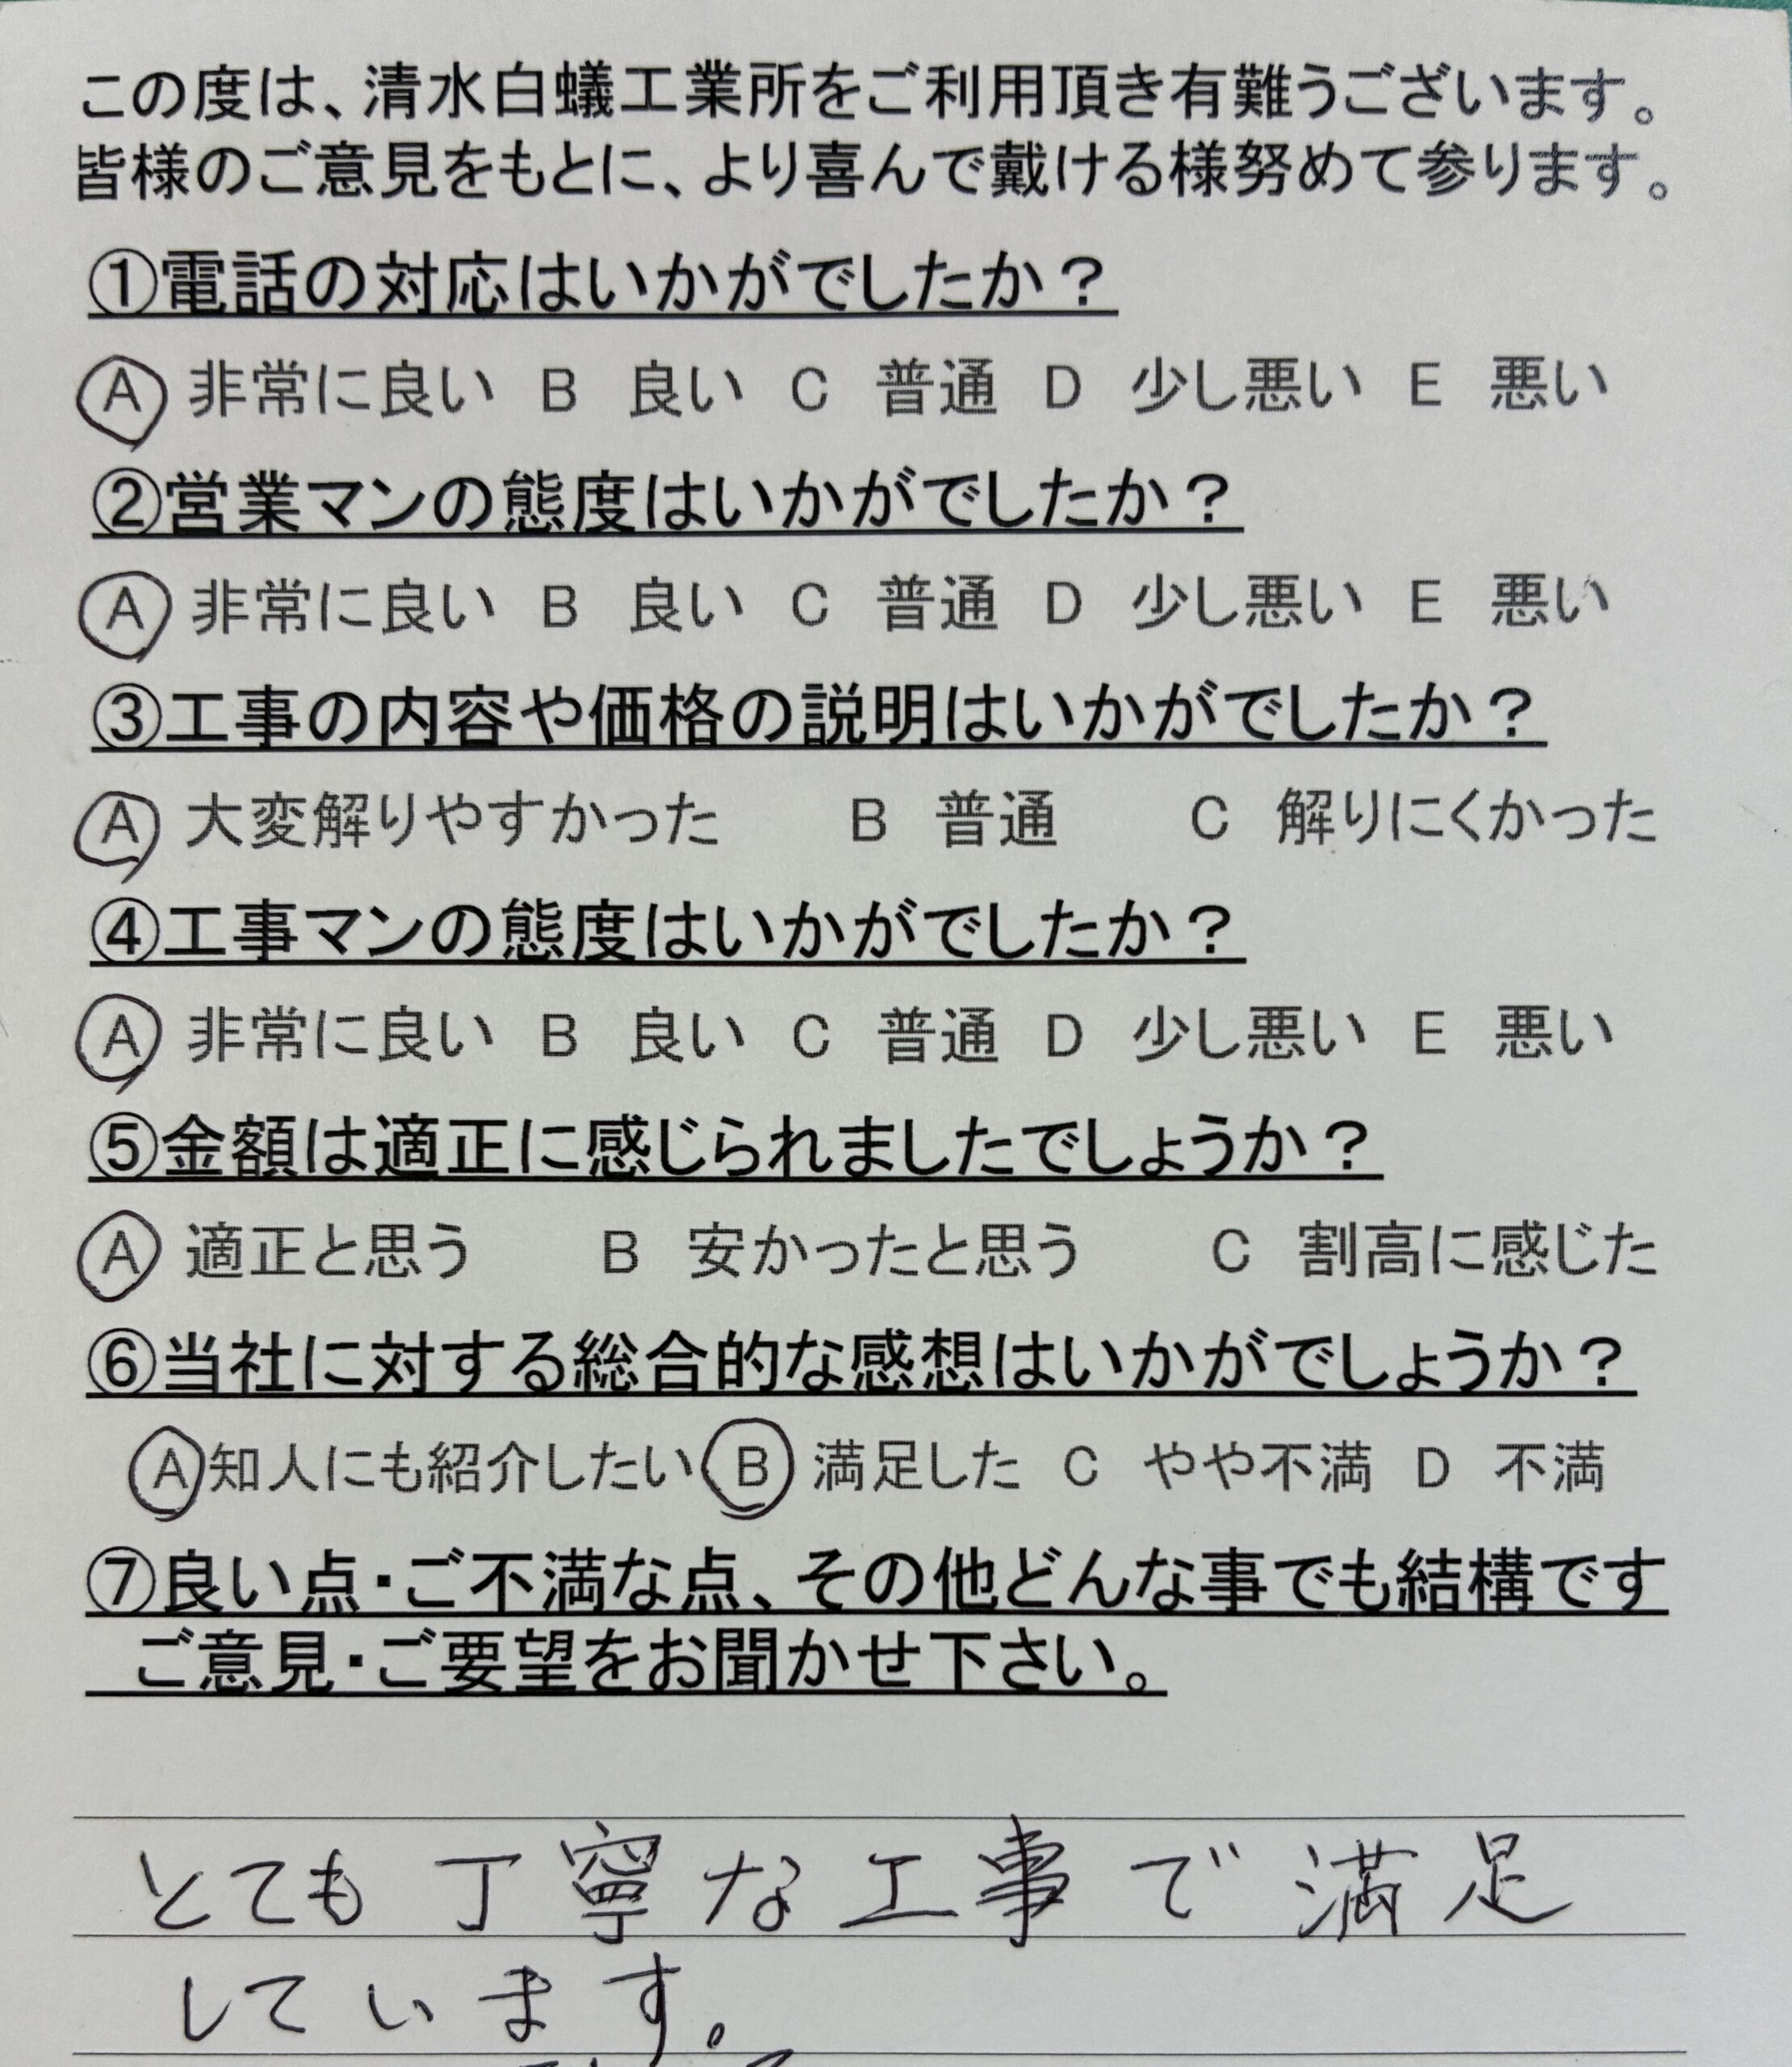 この度は、清水白蟻工業所をご利用頂き有難うございます。
皆様のご意見をもとに、より喜んで戴ける様努めて参ります。
①電話の対応はいかがでしたか？
A 非常に良い B 良い C 普通 D 少し悪い E 悪い
②営業マンの態度はいかがでしたか？
A 非常に良い B 良い C 普通 D 少し悪い E 悪い
③工事の内容や価格の説明はいかがでしたか？
A 大変解りやすかった B 普通 C 解りにくかった
④工事マンの態度はいかがでしたか？
A 非常に良い B 良い C 普通 D 少し悪い E 悪い
⑤金額は適正に感じられましたでしょうか？
A 適正と思う B 安かったと思う C 割高に感じた
⑥当社に対する総合的な感想はいかがでしょうか？
A 知人にも紹介したい B 満足した C やや不満 D 不満
⑦良い点・ご不満な点、その他どんな事でも結構です
ご意見・ご要望をお聞かせ下さい。
とても丁寧な工事で満足
しています。